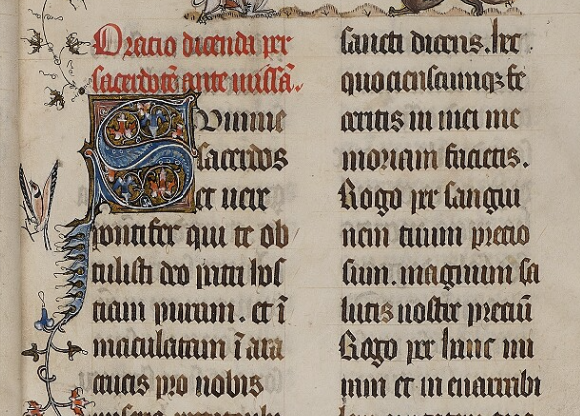 Oratio dicenda per
sacerdotē ante missā.
Summe
sacerdos
et vere
pontifex qui te ob
tulisti deo patri hos
tiam puram. et ī
maculatam ī ara
crucis pro nobis
miseris peccatorib
sancti dicens. hec
quociensciumqꝫ fe
ceritis in mei me
moriam facietis.
Rogo per sangui
nem tuum precio
sum. magnum sa
lutis nostre preciū
Rogo per hanc mi
ram et in enarribi
lem